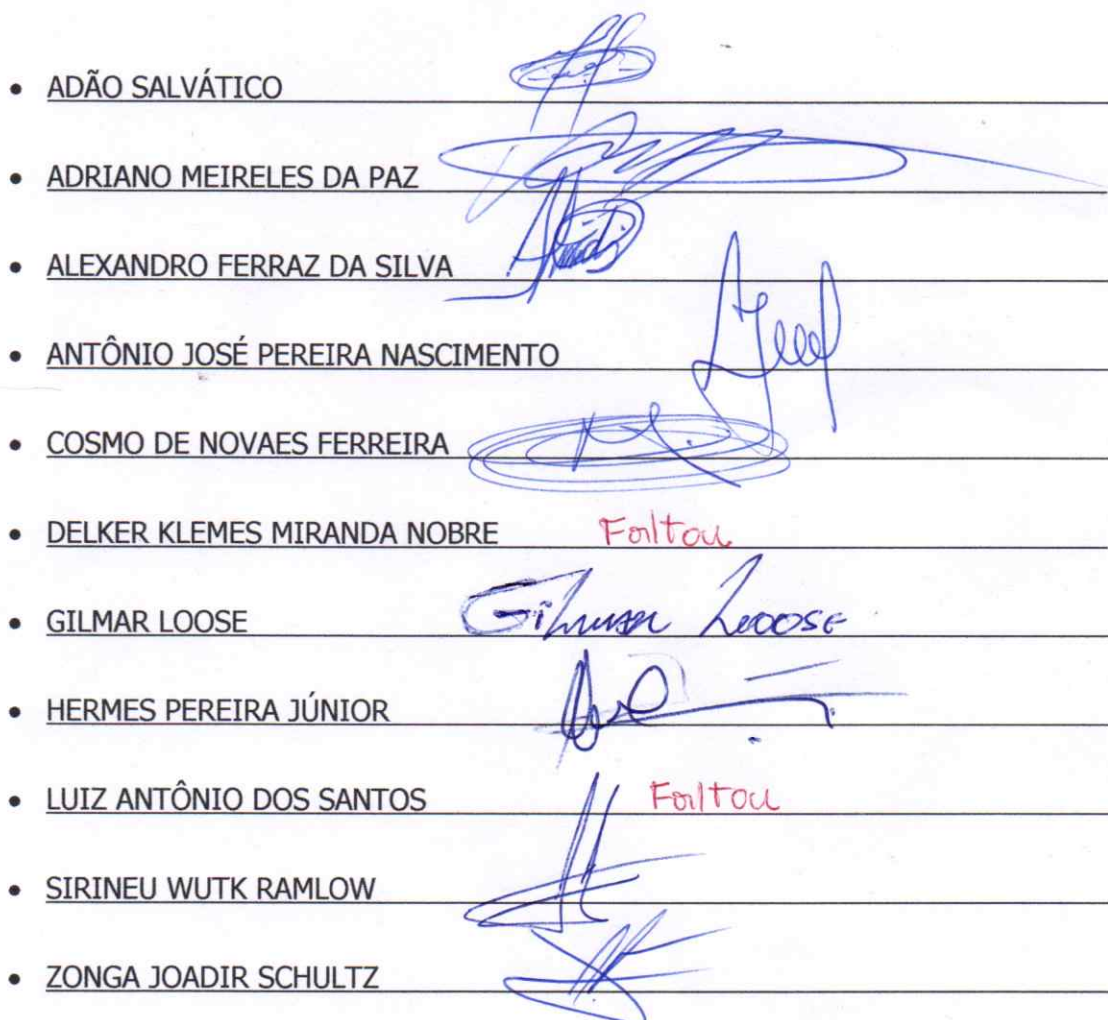 • ADÃO SALVÁTICO
• ADRIANO MEIRELES DA PAZ
• ALEXANDRO FERRAZ DA SILVA
• ANTÔNIO JOSÉ PEREIRA NASCIMENTO
• COSMO DE NOVAES FERREIRA
• DELKER KLEMES MIRANDA NOBRE Faltou
• GILMAR LOOSE Gilmar Loose
• HERMES PEREIRA JÚNIOR
• LUIZ ANTÔNIO DOS SANTOS Faltou
• SIRINEU WUTK RAMLOW
• ZONGA JOADIR SCHULTZ